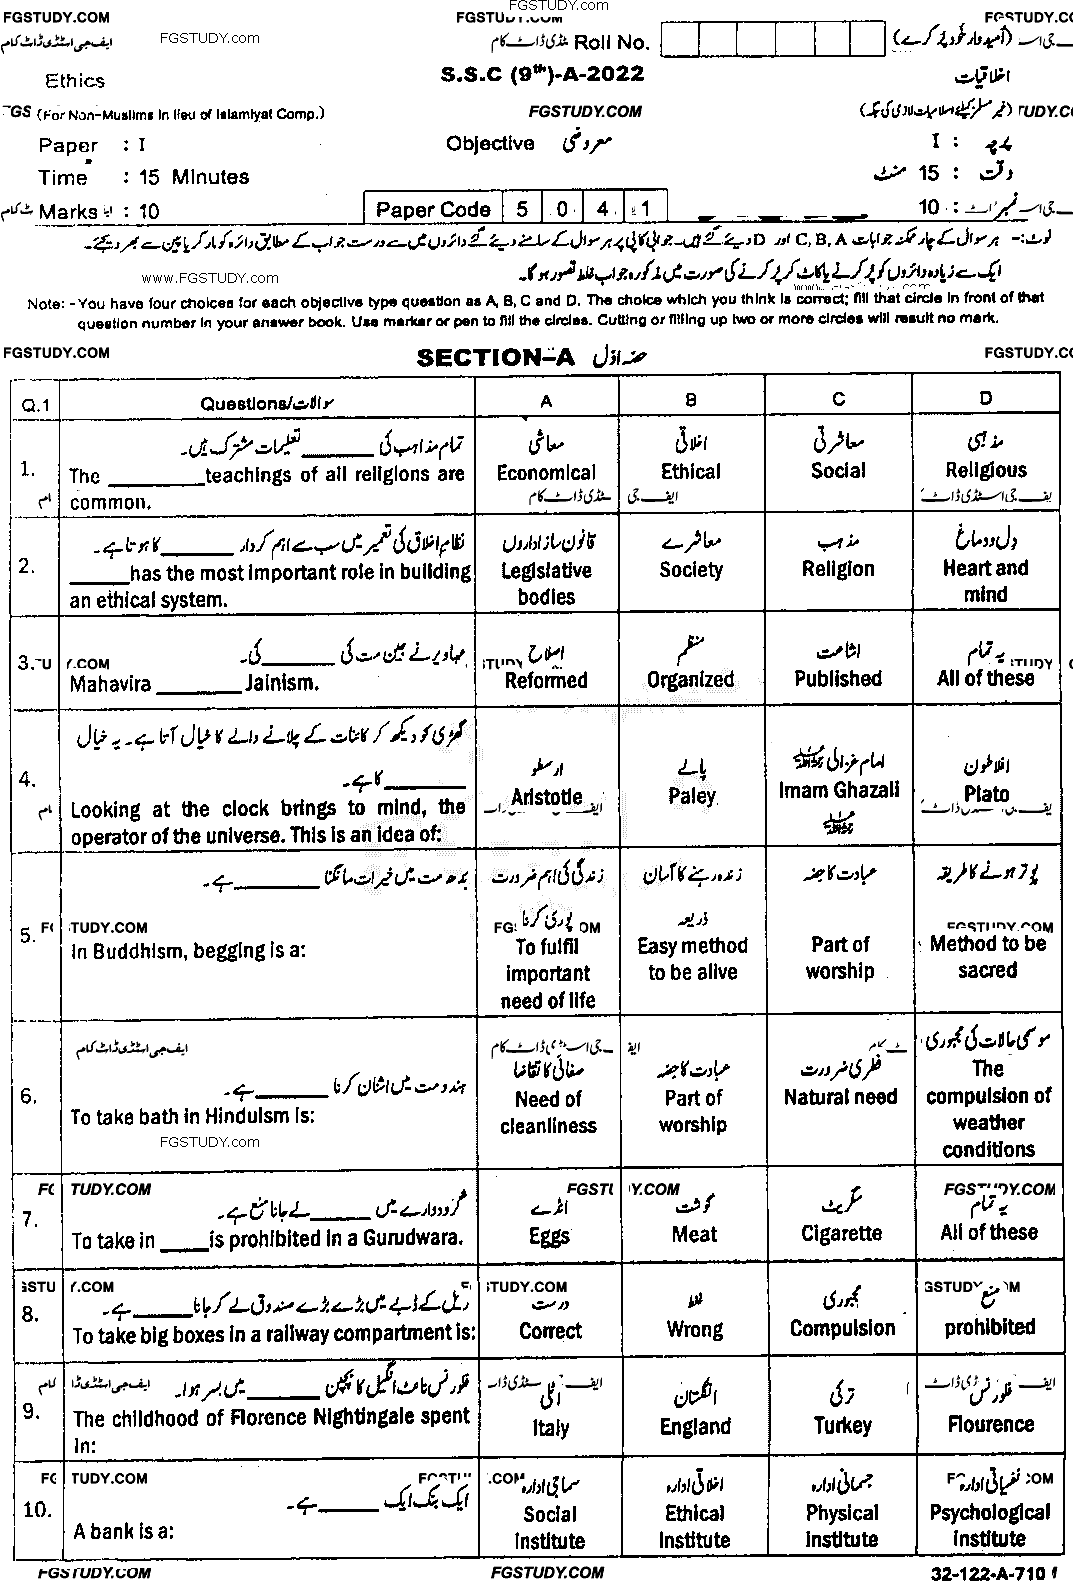 FGSTUDY.COM
FGSTUDY.com
FGSTUDY.COM
FGSTUDY.COM
ایف جی اسٹڈی ڈاٹ کام
FGSTUDY.com
Roll No.
(امیدوار خود پُر کرے)
Ethics
S.S.C (9th)-A-2022
اخلاقیات
(For Non-Muslims in lieu of Islamiyat Comp.)
FGSTUDY.COM
(غیر مسلم کیلئے اسلامیات لازمی کی جگہ)
Paper : I
Objective معروضی
پرچہ : I
Time : 15 Minutes
وقت : 15 منٹ
Marks : 10
Paper Code 5 0 4 1
نمبر : 10
نوٹ:- ہر سوال کے چار ممکنہ جوابات A, B, C اور D دیئے گئے ہیں۔ جوابی کاپی پر ہر سوال کے سامنے دیئے گئے دائروں میں سے درست جواب کے مطابق دائرہ کو مارکر یا پین سے بھر دیجئے۔
ایک سے زیادہ دائروں کو پُر کرنے یا کاٹ کر پُر کرنے کی صورت میں مذکورہ جواب غلط تصور ہو گا۔
www.FGSTUDY.com
Note: - You have four choices for each objective type question as A, B, C and D. The choice which you think is correct; fill that circle in front of that
question number in your answer book. Use marker or pen to fill the circles. Cutting or filling up two or more circles will result no mark.
FGSTUDY.COM
SECTION-A حصہ اوّل
FGSTUDY.CO
Q.1 Questions/سوالات A B C D
1.
تمام مذاہب کی ______ تعلیمات مشترک ہیں۔
The ______teachings of all religions are
common.
معاشی
Economical
اخلاقی
Ethical
معاشرتی
Social
مذہبی
Religious
2.
نظامِ اخلاق کی تعمیر میں سب سے اہم کردار ______ کا ہوتا ہے۔
______has the most important role in building
an ethical system.
قانون ساز اداروں
Legislative
bodies
معاشرے
Society
مذہب
Religion
دل و دماغ
Heart and
mind
3.
مہاویر نے جین مت کی ______ کی۔
Mahavira ______ Jainism.
اصلاح
Reformed
منظم
Organized
اشاعت
Published
یہ تمام
All of these
4.
گھڑی کو دیکھ کر کائنات کے چلانے والے کا خیال آتا ہے۔ یہ خیال
______ کا ہے۔
Looking at the clock brings to mind, the
operator of the universe. This is an idea of:
ارسطو
Aristotle
پالے
Paley
امام غزالی
Imam Ghazali
افلاطون
Plato
5.
بدھ مت میں خیرات مانگنا ______ ہے۔
In Buddhism, begging is a:
زندگی کی اہم ضرورت
پوری کرنا
To fulfil
important
need of life
زندہ رہنے کا آسان
ذریعہ
Easy method
to be alive
عبادت کا حصہ
Part of
worship
پوتر ہونے کا طریقہ
FGSTUDY.COM
Method to be
sacred
6.
ایف جی اسٹڈی ڈاٹ کام
ہندو مت میں اشنان کرنا ______ ہے۔
To take bath in Hinduism is:
FGSTUDY.com
صفائی کا تقاضا
Need of
cleanliness
عبادت کا حصہ
Part of
worship
فطری ضرورت
Natural need
موسمی حالات کی مجبوری
The
compulsion of
weather
conditions
7.
گردوارے میں ______ لے جانا منع ہے۔
To take in ______is prohibited in a Gurudwara.
انڈے
Eggs
گوشت
Meat
سگریٹ
Cigarette
FGSTUDY.COM
یہ تمام
All of these
8.
ریل کے ڈبے میں بڑے بڑے صندوق لے کر جانا ______ ہے۔
To take big boxes in a railway compartment is:
درست
Correct
غلط
Wrong
مجبوری
Compulsion
منع
prohibited
9.
فلورنس نائٹ انگیل کا بچپن ______ میں بسر ہوا۔
The childhood of Florence Nightingale spent
in:
اٹلی
Italy
انگلستان
England
ترکی
Turkey
فلورنس
Flourence
10.
ایک بنک ایک ______ ہے۔
A bank is a:
سماجی ادارہ
Social
institute
اخلاقی ادارہ
Ethical
institute
جسمانی ادارہ
Physical
institute
نفسیاتی ادارہ
Psychological
institute
FGSTUDY.COM
FGSTUDY.COM
32-122-A-710